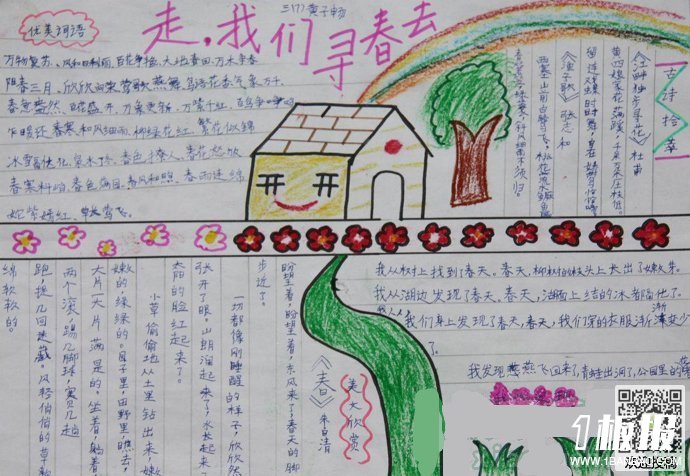 三(7)黄子畅
走,我们寻春去
优美词语
万物复苏、风和日丽雨、百花争艳、大地春回、万木争春
阳春三月、欣欣向荣、莺歌燕舞、鸟语花香、气象万千
春意盎然、百花盛开、万象更新、万紫千红、百鸟争鸣
乍暖还春寒、和风细雨、柳绿花红、繁花似锦
冰雪融化、泉水叮咚、春色撩人、春花怒放
春寒料峭、春色满园、春风和煦、春雨连绵
姹紫嫣红、草长莺飞。
古诗拾萃
《江畔独步寻花》 杜甫
黄四娘家花满蹊,千朵万朵压枝低。
留连戏蝶时时舞,自在娇莺恰恰啼。
《渔歌子》 张志和
西塞山前白鹭飞,桃花流水鳜鱼肥
斜风细雨不须归。
我从树上找到了春天。春天,柳树的枝头上长出了嫩芽。
我从湖边发现了春天。春天,湖面上结的冰者融化了。
我从人们身上发现了春天。春天,我们穿的衣服渐渐变少
了。
我发现燕燕飞回来了,青蛙出洞了,公园里的
美文欣赏
《春》 朱自清
盼望着,盼望着,东风来了,春天的脚
步近了。
一切都像刚睡醒的样子,欣欣然
张开了眼。山朗润起来了,水长起来了,
太阳的脸红起来了。
小草偷偷地从土里钻出来,嫩
嫩的,绿绿的。园子里,田野里,瞧去,一
大片一大片满是的。坐着,躺着,
两个滚,踢几脚球,赛几趟
跑,捉几回迷藏。风轻悄悄的,草
绵软软的。
1板报
WWW.1BANBAO.COM